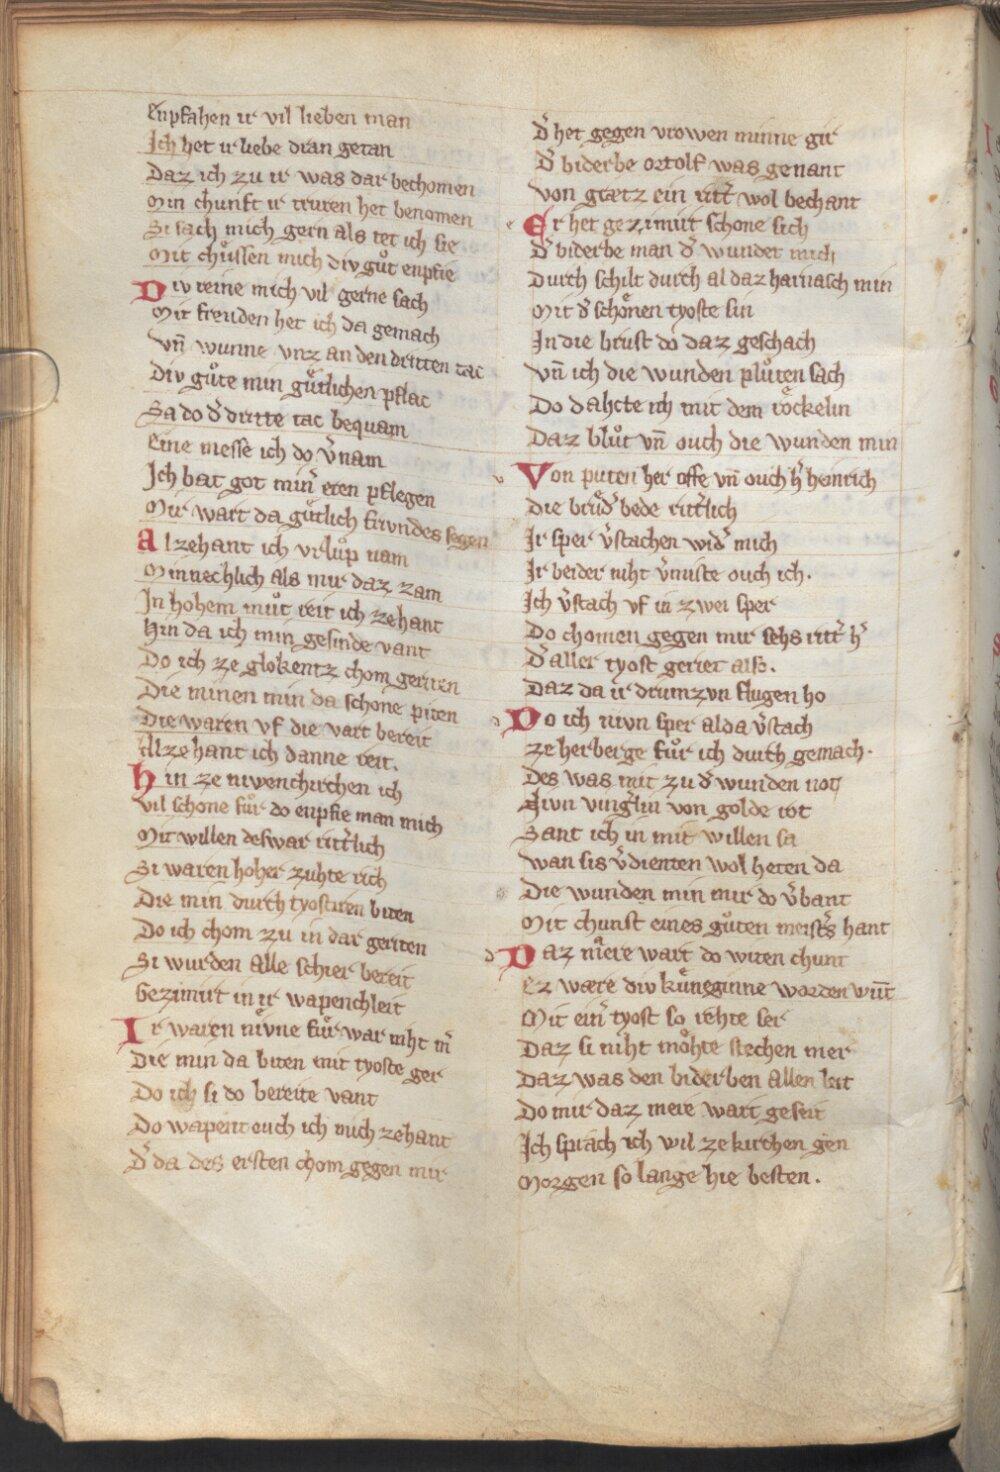 Enpfahen ir vil lieben man
Ich het ir liebe dran getan
Daz ich zu ir was dar bechomen
Min chunft ir truren het benomen
Si sach mich gern als tet ich sie
Mit chuͦssen mich div guͦt enpfie
Div reine mich vil gerne sach
Mit freuden het ich da gemach
Vn̄ wunne vnz an den dritten tac
Div guͦte min guͤtlichen pflac
Sa do d̓ dritte tac bequam
Eine messe ich do v̓nam
Ich bat got min̓ eren pflegen
Mir wart da guͤtlich frivndes segen
Alzehant ich vrluͦp nam
Minnechlich als mir daz zam
In hohem muͦt reit ich zehant
Hin da ich min gesinde vant
Do ich ze glokentz chom geriten
Die minen min da schone piten
Die waren vf die vart bereit
Alzehant ich danne reit.
Hin ze nivenchirchen ich
Vil schone fuͦr do enpfie man mich
Mit willen deswar ritt̓lich
Si waren hoher zuhte rich
Die min durch tyostiren biten
Do ich chom zu in dar geriten
Si wurden alle schier bereit
Gezimirt in ir wapenchleit
Ir waren nivne fuͤr war niht m̓
Die min da biten mit tyoste ger
Do ich si do bereite vant
Do wapent ouch ich mich zehant
D̓ da des ersten chom gegen mir
D̓ het gegen vrowen minne gir
D̓ biderbe ortolf was genant
Von grætz ein ritt̓ wol bechant
Er het gezimirt schone sich
D̓ biderbe man d̓ wundet mich
Durch schilt durch al daz harnasch min
Mit d̓ schoͤnen tyoste sin
In die brust do daz geschach
Vn̄ ich die wunden pluͦten sach
Do dahcte ich mit dem roͤckelin
Daz bluͦt vn̄ ouch die wunden min
Von puten her offe vn̄ ouch h̓ heinrich
Die bruͤd̓ bede ritt̓lich
Ir sper v̓stachen wid̓ mich
Ir beider niht v̓miste ouch ich.
Ich v̓stach vf in zwei sper
Do chomen gegen mir sehs ritt̓ h̓
D̓ aller tyost geriet also.
Daz da ir drumzvn flugen ho
Do ich nivn sper alda v̓stach
Ze herberge fuͦr ich durch gemach.
Des was mir zu d̓ wunden not
Nivn ving̓lin von golde rot
Sant ich in mit willen sa
Wan sis v̓dienten wol heten da
Die wunden min mir do v̓bant
Mit chunst eines guͦten meist̓s hant
Daz mære wart do witen chunt
Ez wære div kuͤneginne worden wūt
Mit ein̓ tyost so rehte ser
Daz si niht moͤhte stechen mer
Daz was den biderben allen leit
Do mir daz mere wart geseit
Ich sprach ich wil ze kirchen gen
Morgen so lange hie besten.